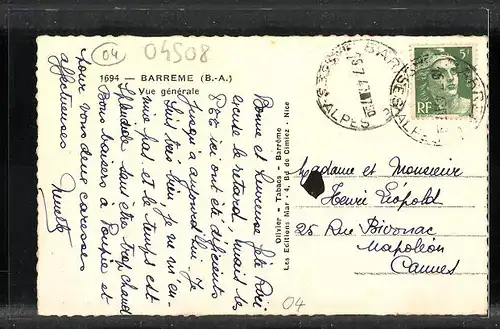 04
04508
1694 BARREME (B.-A.)
Vue générale
Bonne et heureuse fête
le retard, mais les
ici ont été déficients
jusqu'à aujourd'hui. Je
suis très bien, je ne m'en-
nuie pas, et le temps est
splendide, sans être trop chaud
Bons baisers à Poupée et
pour vous deux caresses
affectueuses
Olivier - Tabacs - Barrême
Les Editions Mar - 4, Bd de Cimiez - Nice
BARR
SES-ALPES
5F
RF
SES-ALPES
Madame et Monsieur
Henri Léopold
25 Rue Bivouac
Napoléon
Cannes
04